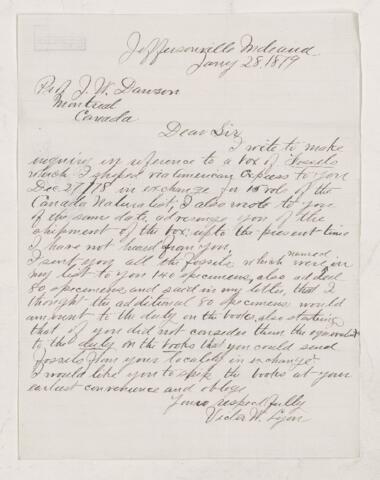 Jeffersonville Indiana
Jany 28, 1879
Prof J. W. Dawson
Montreal
Canada
Dear Sir,
I write to make
inquiry in reference to a box of Fossils
which I shiped via American Express to you
Dec 27/78 in exchange for 15 vols of the
Canada Naturalist, I also wrote to you
of the same date, advising you of the
shipment of the box, up to the present time
I have not heard from you,
I sent you all the Fossils which were named in
my list to you 140 specimens, also added
80 specimens and said in my letter, that I
thought the additional 80 specimens would
amount to the duty on the books, also stating
that if you did not consider them the equivalent
to the duty on the books that you could send
Fossils from your locality in exchange
I would like you to ship the books at your
earliest convenience and oblige
Yours respectfully
Victor W. Lyon